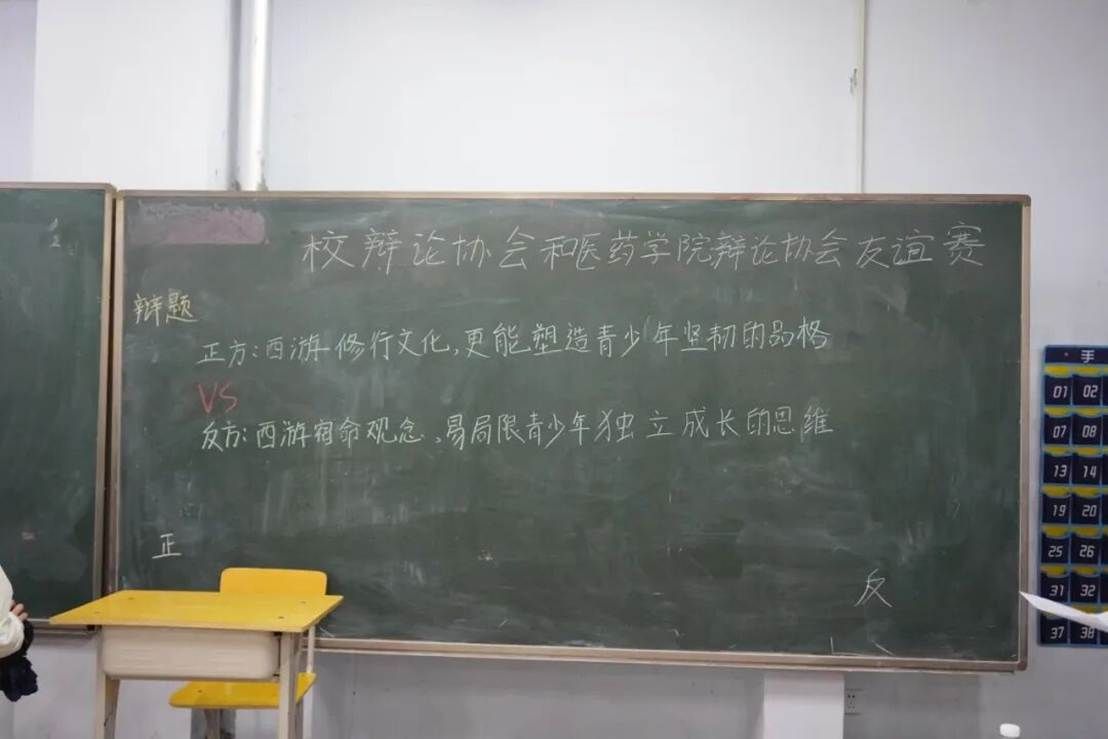 校辩论协会和医药学院辩论协会友谊赛
辩题
正方:西游修行文化,更能塑造青少年坚韧的品格
VS
反方:西游宿命观念,易局限青少年独立成长的思维
正
反
手
01 02
07 08
13 14
19 20
25 26
31 32
37 38